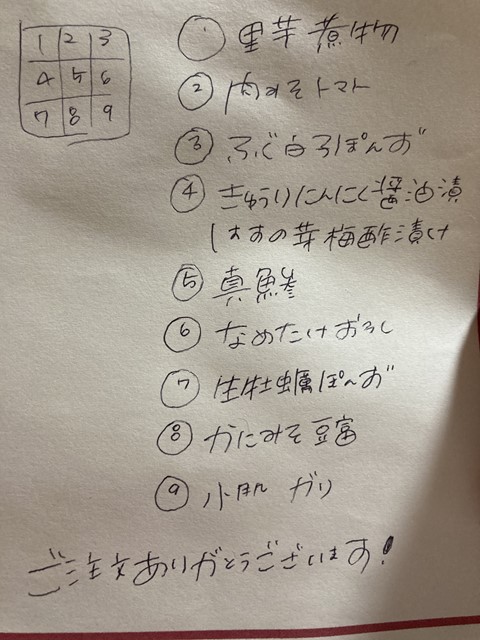 1 2 3
4 5 6
7 8 9
① 里芋煮物
② 肉みそトマト
③ ふぐ白子ぽんず
④ きゅうりにんにく醤油漬
はすの芽梅酢漬け
⑤ 真鯵
⑥ なめたけおろし
⑦ 生牡蠣ぽんず
⑧ かにみそ豆富
⑨ 小肌 ガリ
ご注文ありがとうございます!